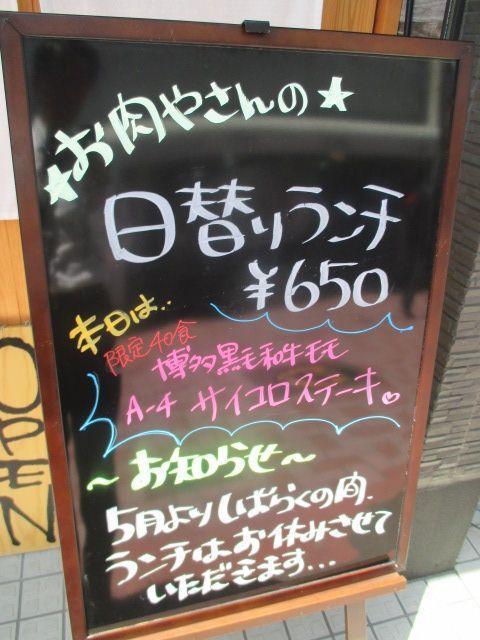 ★お肉やさんの★
日替りランチ
¥650
本日は..
限定40食
博多黒毛和牛モモ
A-4 サイコロステーキ♡
～お知らせ～
5月よりしばらくの間、
ランチはお休みさせて
いただきます...
OPEN